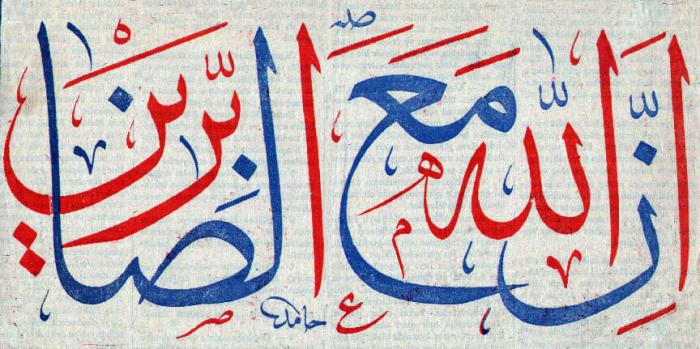 إنّ الله مع الصّابرين
حامد